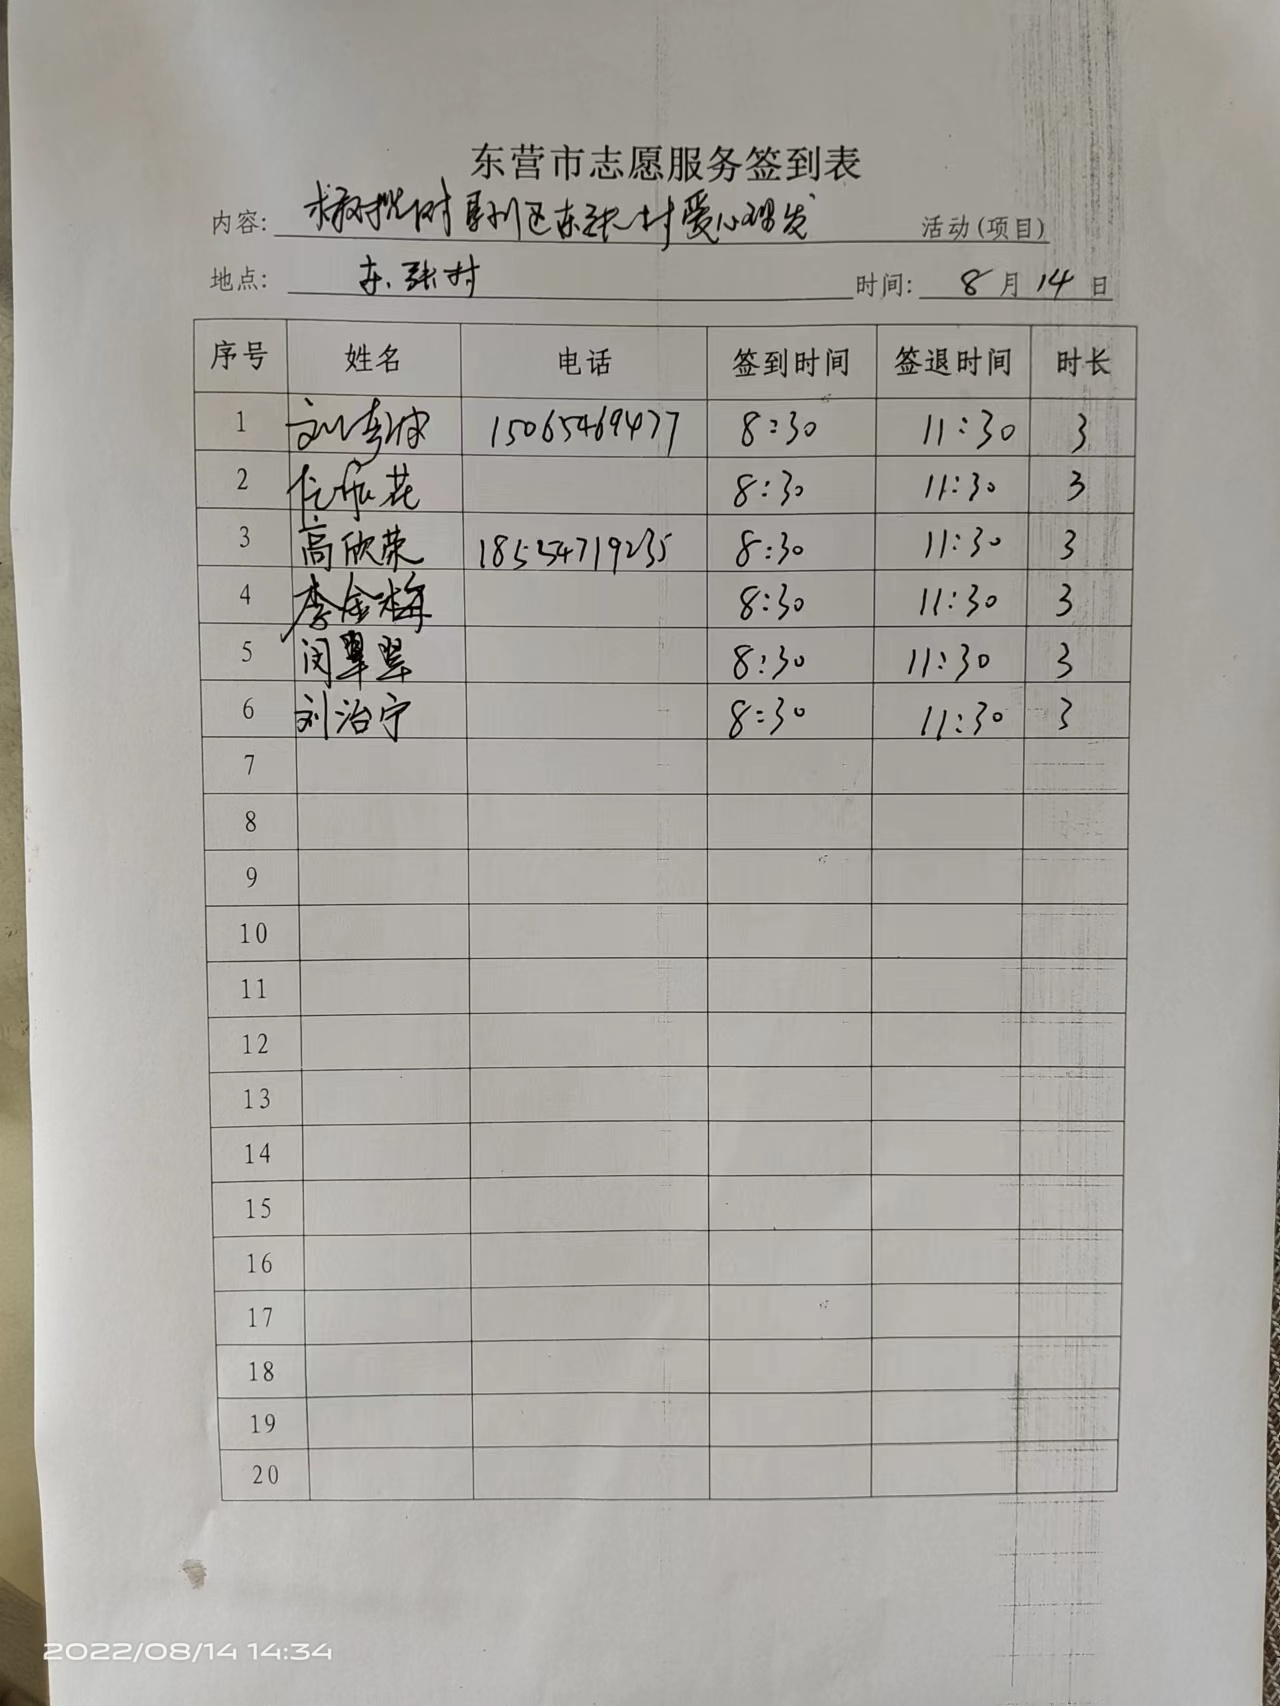 东营市志愿服务签到表
内容: 橄榄树垦利区东张村爱心理发 活动(项目)
地点: 东张村 时间: 8月14日
序号 姓名 电话 签到时间 签退时间 时长
1 15065469477 8:30 11:30 3
2 8:30 11:30 3
3 高欣荣 18554719235 8:30 11:30 3
4 李金梅 8:30 11:30 3
5 闵翠翠 8:30 11:30 3
6 刘治宁 8:30 11:30 3
7
8
9
10
11
12
13
14
15
16
17
18
19
20
2022/08/14 14:34